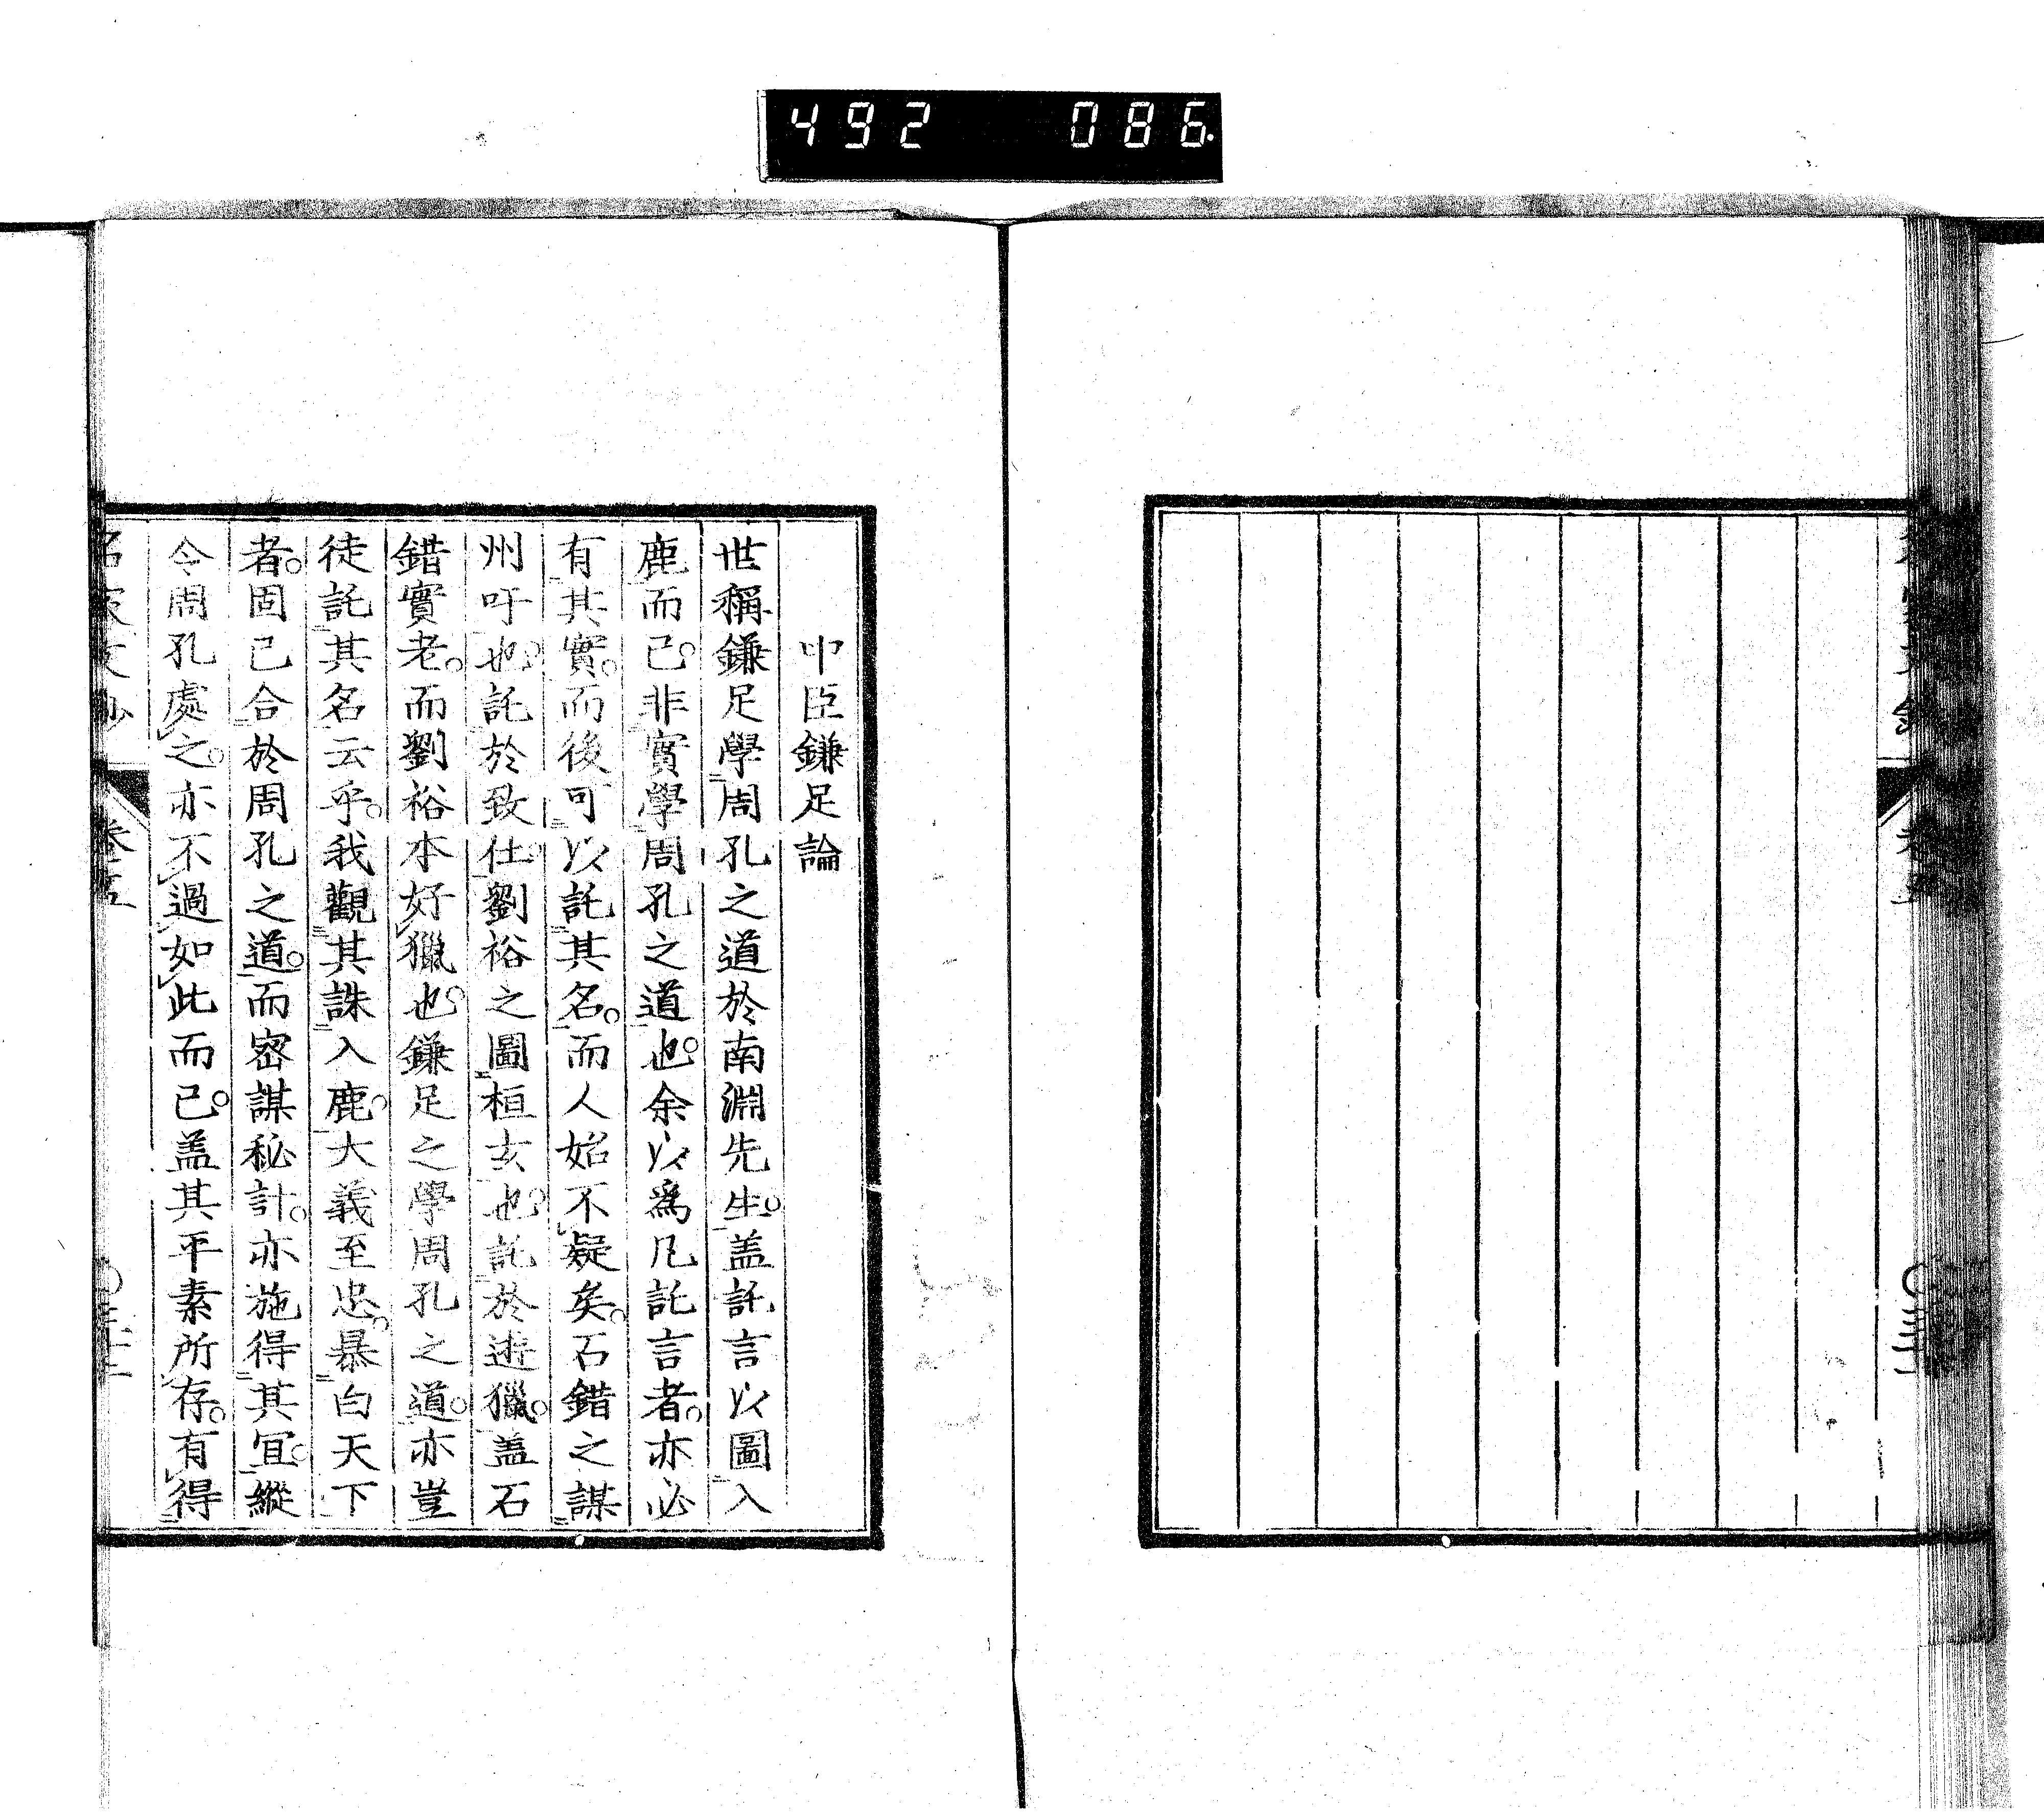 492 086.
中臣鎌足論
世稱鎌足學周孔之道於南淵先生。盖託言以圖入
鹿而已。非實學周孔之道也。余以爲凡託言者。亦必
有其實。而後可以託其名。而人始不疑矣。石錯之謀
州吁也。託於致仕。劉裕之圖桓玄也。託於遊獵。盖石
錯實老。而劉裕本好獵也。鎌足之學周孔之道。亦豈
徒託其名云乎。我觀其誅入鹿。大義至忠。暴白天下
者。固已合於周孔之道。而密謀秘計。亦施得其宜。縱
令周孔處之。亦不過如此而已。盖其平素所存。有得
名家文抄 卷五